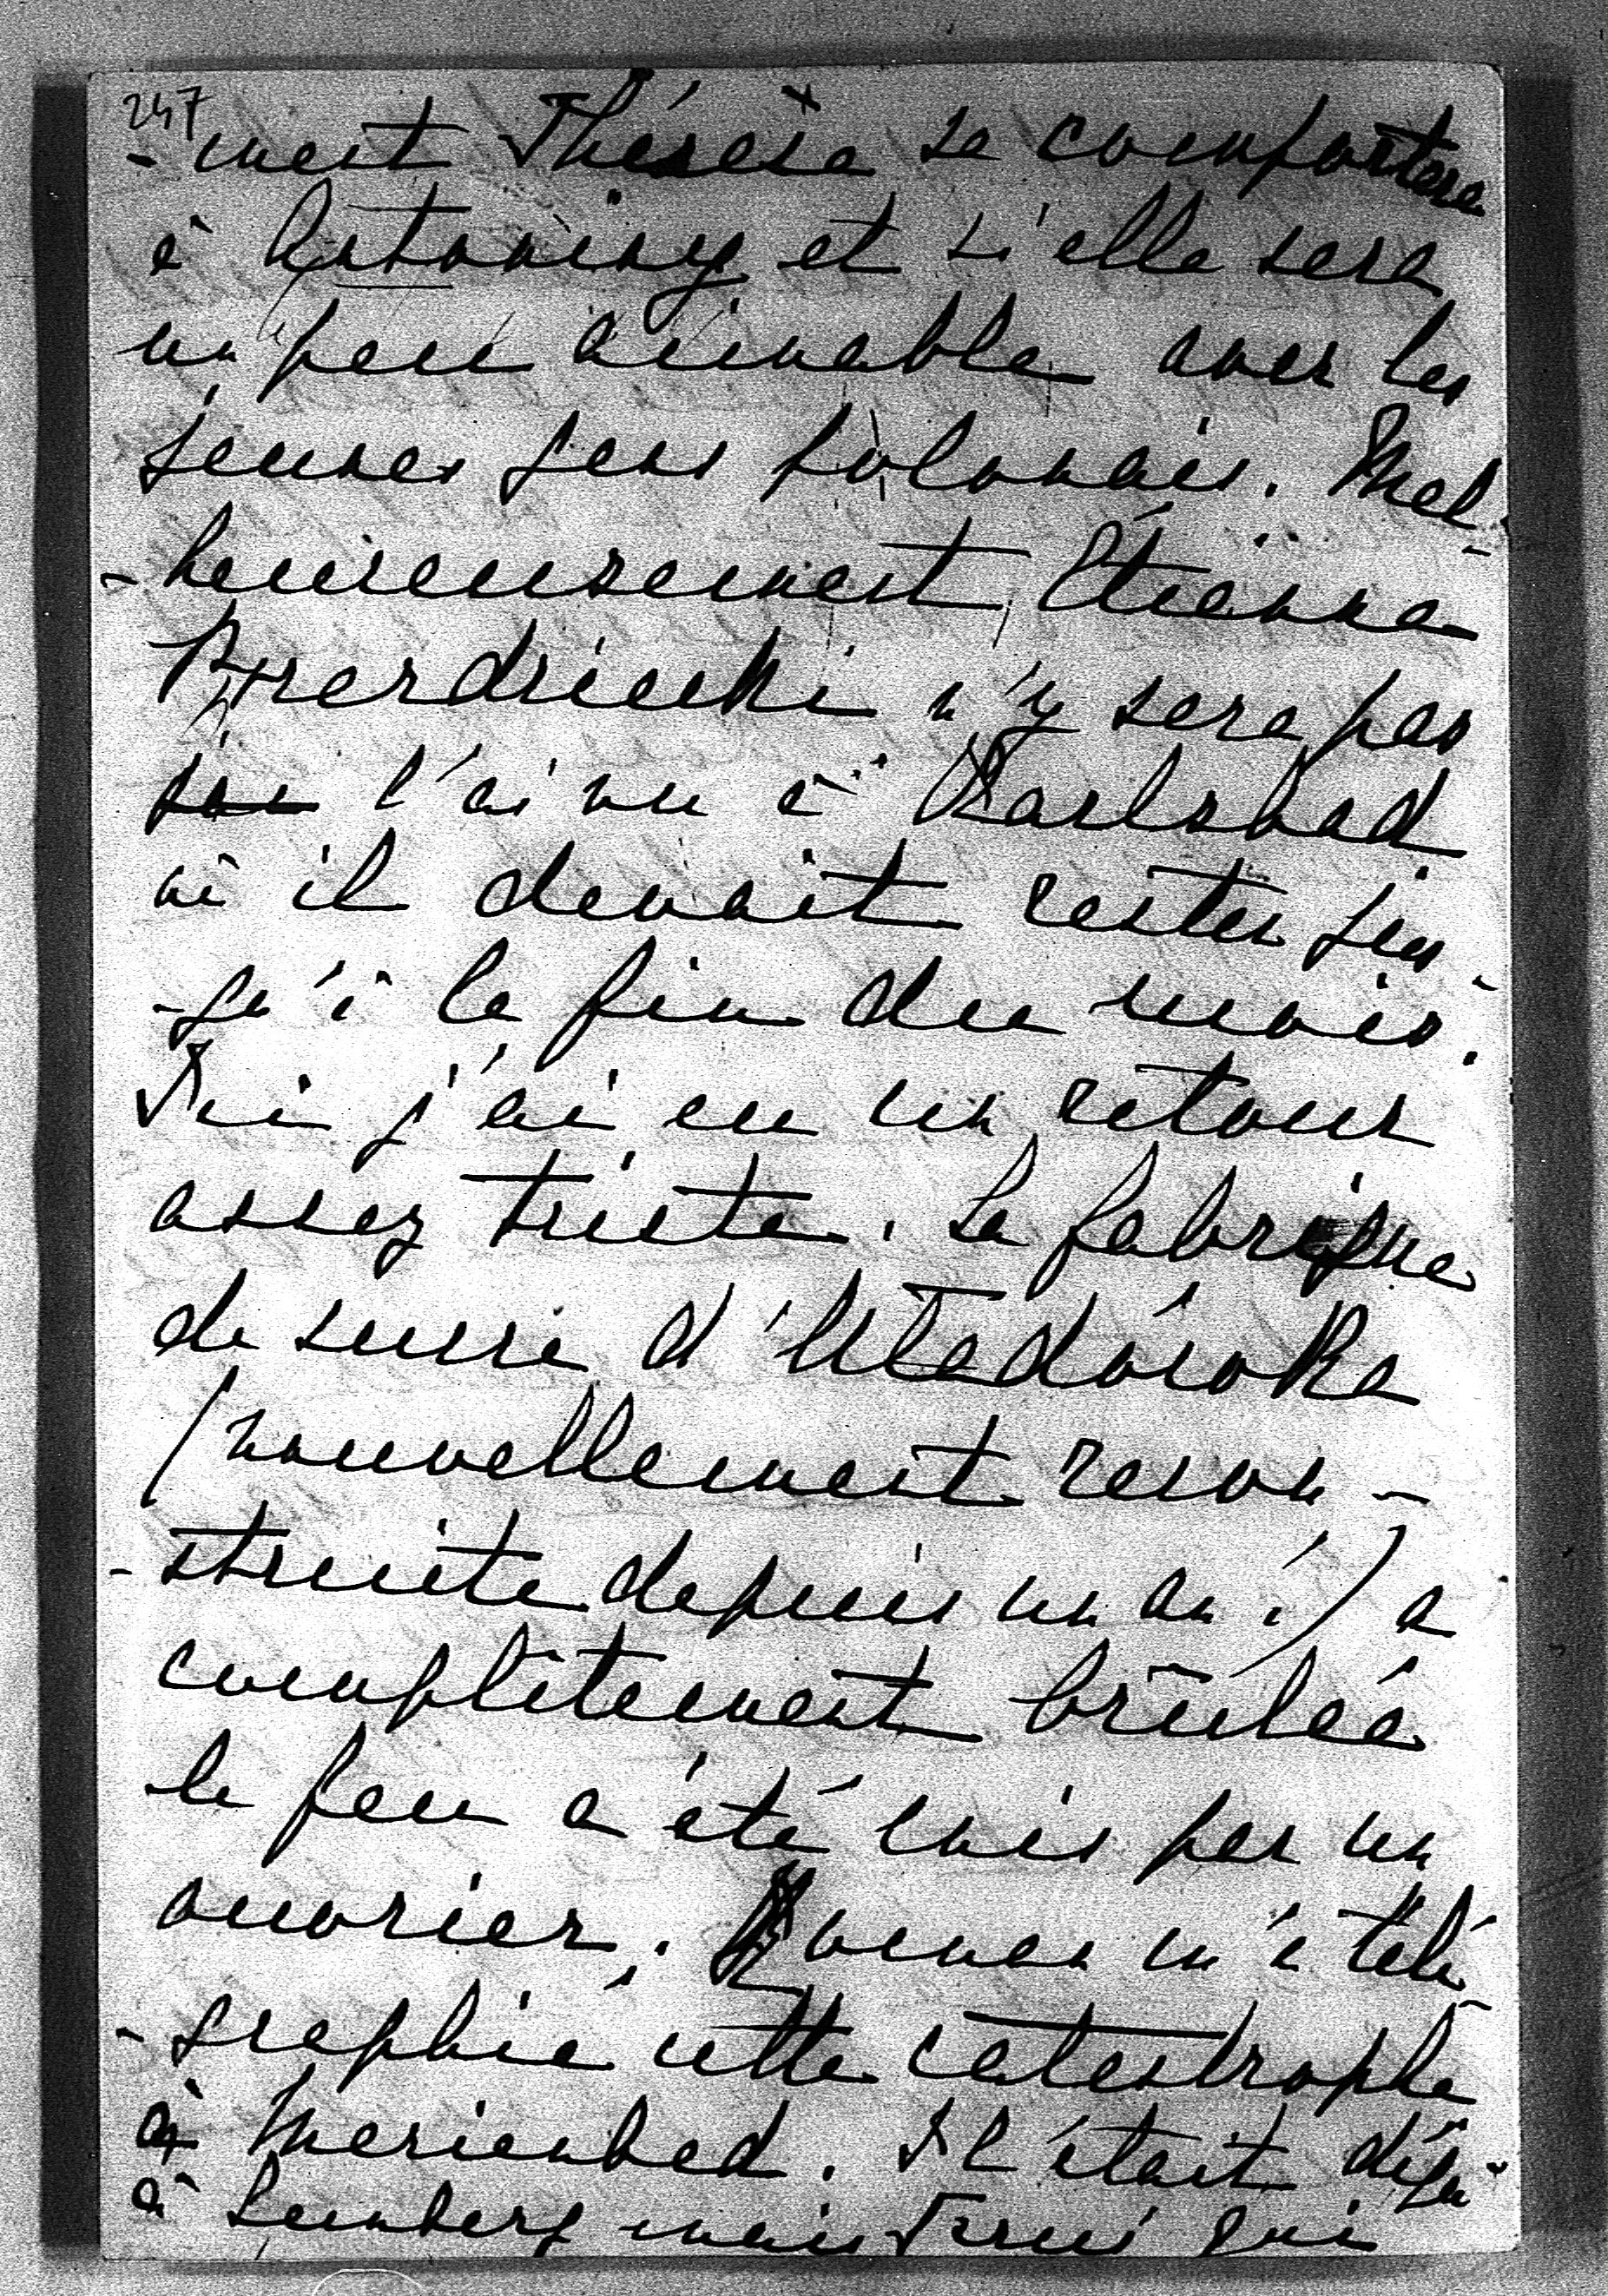 247
- ment Thérèse se comportera
à Antoniny et si elle sera
un peu aimable avec les
jeunes gens polonais. Mal-
- heureusement Etienne
n'y sera pas
l'ai vu à Karlsbad
où il devait rester jus-
- qu'à la fin du mois.
Ici j'ai eu un retour
assez triste. La fabrique
de sucre d'Uładówka
(nouvellement recon-
- struite depuis un an!) a
complètement brûlée
le feu a été mis par un
ouvrier. m'a télé-
- graphié cette catastrophe
à Marienbad. Il était déjà
à Lemberg mais qui